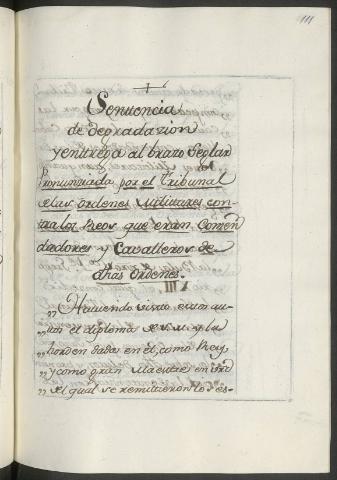 111
Sentencia
de degradazion
y entrega al brazo Seglar
Pronunciada por el Tribunal
de las Ordenes Militares con-
tra los Reos que eran Comen
dadores y Cavalleros de
dhas Ordenes.
VIII.
,, Haviendo visto estos au-
,, tos el diploma de S. M. y la
,, horden dada en él, como Rey,
,, y como gran Maestre en
,, el qual se remitieron los es-